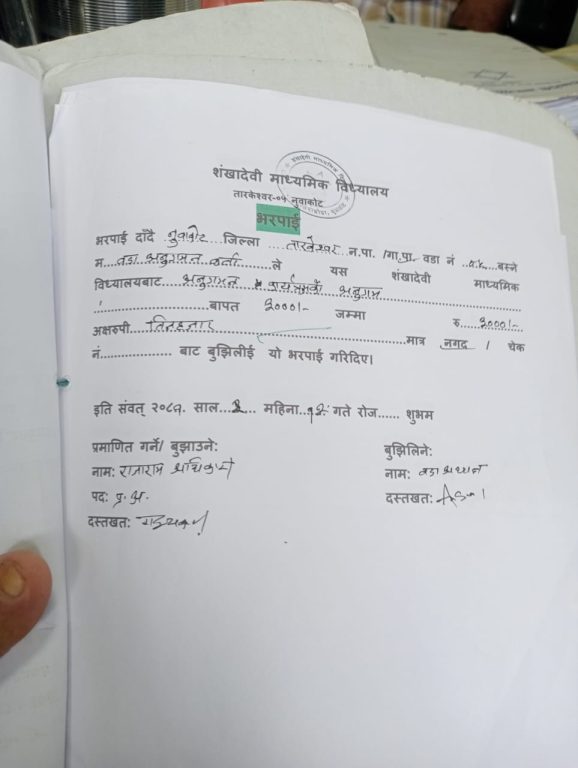 शंखादेवी माध्यमिक विद्यालय
तारकेश्वर-०५ नुवाकोट
भरपाई
भरपाई दाँदै नुवाकोट जिल्ला ....तारकेश्वर न.पा. /गा.पा. वडा नं ..५.. बस्ने
म...वडा अनुगमन कर्ता......ले यस शंखादेवी माध्यमिक
विद्यालयबाट अनुगमन कार्यक्रमको अनुगमन
बापत ३०००।- जम्मा रु ३०००।-
अक्षरुपी तिनहजार मात्र नगद / चेक
नं.................. बाट बुझिलीई यो भरपाई गरिदिए।
इति संवत् २०८१. साल...२... महिना...१२. गते रोज...... शुभम
प्रमाणित गर्ने/ बुझाउने:
नाम: राजाराम अधिकारी
पद: प्र.अ.
दस्तखत:
बुझिलिने:
नाम: वडा अध्यक्ष
दस्तखत: